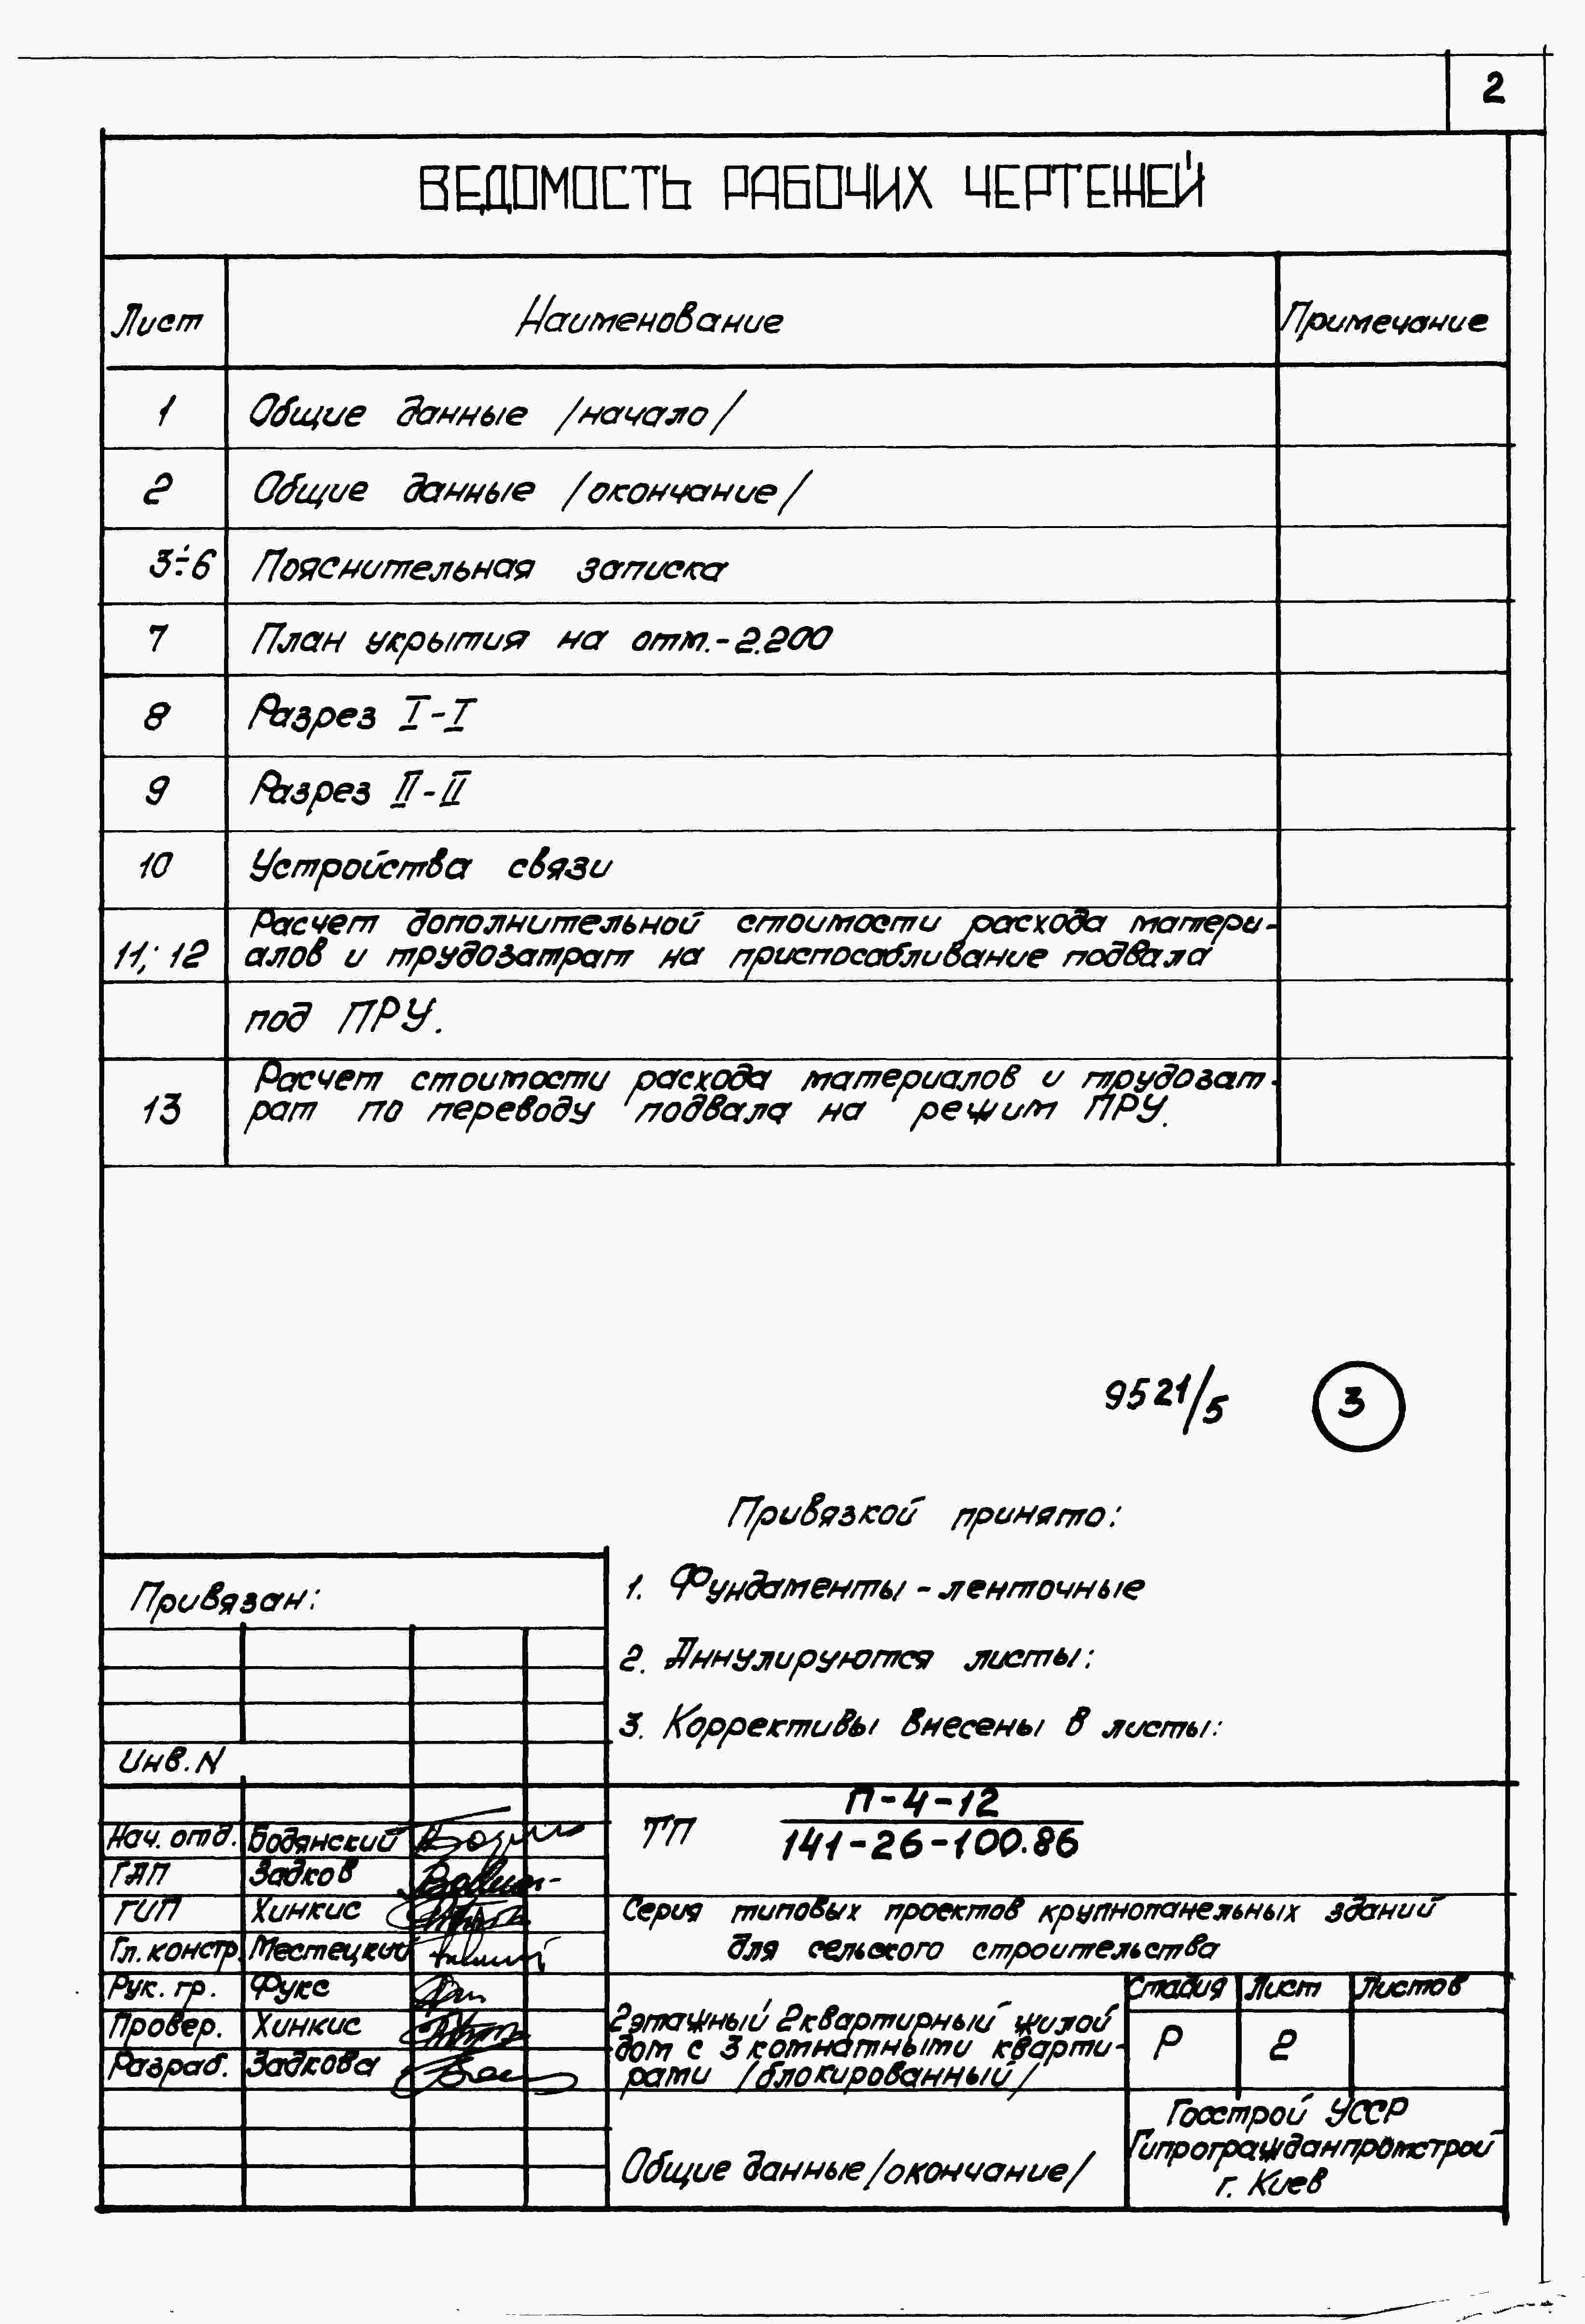 2
ВЕДОМОСТЬ РАБОЧИХ ЧЕРТЕЖЕЙ
Лист Наименование Примечание
1 Общие данные /начало/
2 Общие данные /окончание/
3÷6 Пояснительная записка
7 План укрытия на отм.-2.200
8 Разрез I-I
9 Разрез II-II
10 Устройства связи
Расчет дополнительной стоимости расхода матери-
11; 12 алов и трудозатрат на приспосабливание подвала
под ПРУ.
Расчет стоимости расхода материалов и трудозат-
13 рат по переводу подвала на режим ПРУ.
9521/5 3
Привязкой принято:
1. Фундаменты - ленточные
2. Аннулируются листы:
3. Коррективы внесены в листы:
Привязан:
Инв.N
Нач. отд. Бодянский
ГАП Задков
ГИП Хинкис
Гл. констр. Местецкий
Рук. гр. Фукс
Провер. Хинкис
Разраб. Задкова
ТП П-4-12
141-26-100.86
Серия типовых проектов крупнопанельных зданий
для сельского строительства
2этажный 2квартирный жилой
дом с 3 комнатными кварти-
рами /блокированный/
Стадия Лист Листов
Р 2
Общие данные /окончание/
Госстрой УССР
Гипрогражданпромстрой
г. Киев